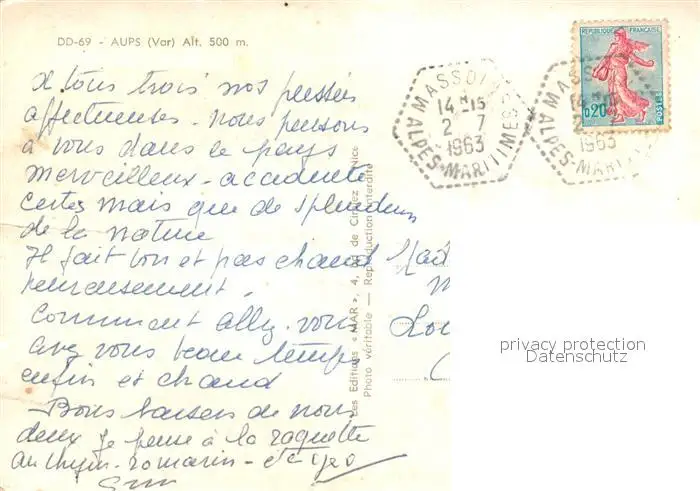 DD-69 - AUPS (Var) Alt. 500 m.
A tous trois nos pensées
affectueuses. nous pensons
à vous dans ce pays
merveilleux - accidenté
certes mais que de splendeurs
de la nature
Il fait bon et pas chaud
heureusement.
Comment allez-vous
avez vous beau temps
enfin et chaud
Bons baisers de nous
deux je pense à la raquette
au thym - romarin - etc
Les Editions « MAR », 4, de Cimiez Nice
Photo véritable — Reproduction interdite
MASSOINS
14 H 15
2 7
1963
ALPES-MARITIMES
REPUBLIQUE FRANÇAISE
0,20
POSTES
MASSO
2
1963
ALPES-MARITI
privacy protection
Datenschutz